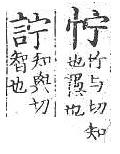 㤖竹与切知也愚也
詝知與切智也